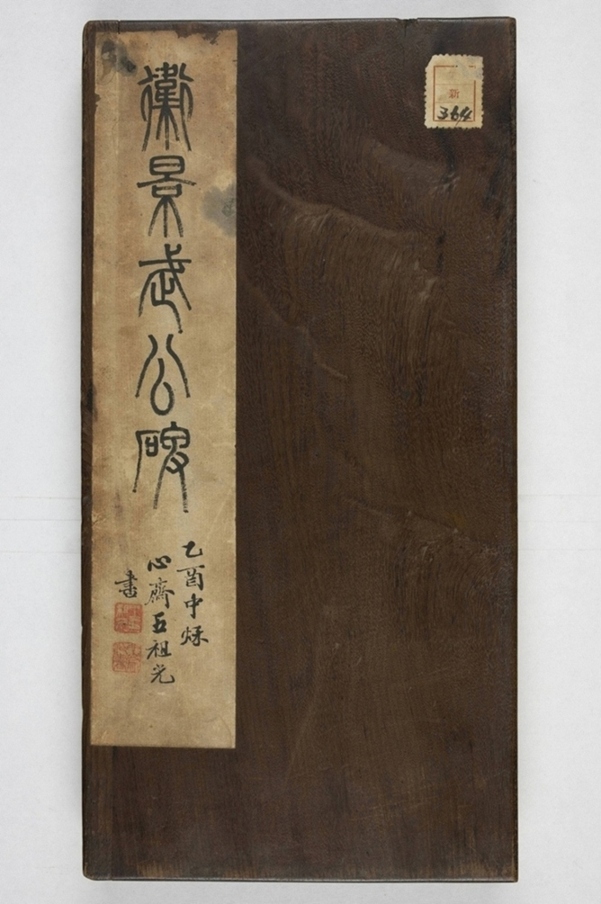 衛景武公碑
乙酉中秌
心齋王祖光
書
新
364